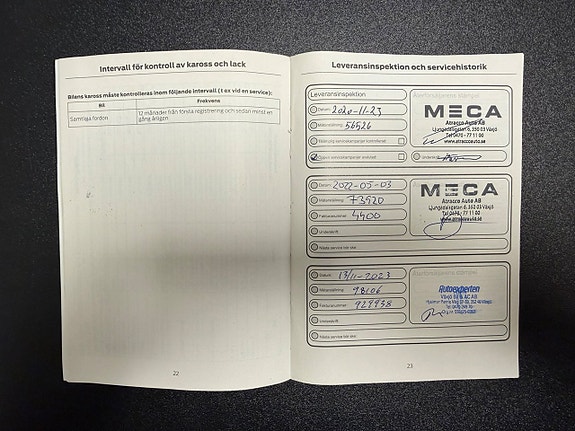 Intervall för kontroll av kaross och lack
Bilens kaross måste kontrolleras inom följande intervall (t ex vid en service):
Bil Frekvens
Samtliga fordon 12 månader från första registrering och sedan minst en gång årligen
22
Leveransinspektion och servicehistorik
Leveransinspektion
Datum: 2020-11-23
Mätarställning: 56526
MECA
Atracco Auto AB
Ljungadalsgatan 6, 350 03 Växjö
Tel 0470 - 77 11 00
www.atraccoauto.se
Datum: 2022-05-03
Mätarställning: 73920
Fakturanummer: 4400
Underskrift:
Nästa service bör ske:
MECA
Atracco Auto AB
Ljungadalsgatan 6, 352 03 Växjö
Tel 0470 - 77 11 00
www.atraccoauto.se
Datum: 13/11-2023
Mätarställning: 98106
Fakturanummer: 929938
Underskrift:
Nästa service bör ske:
Autoexperten
Växjö Bil & AC AB
23